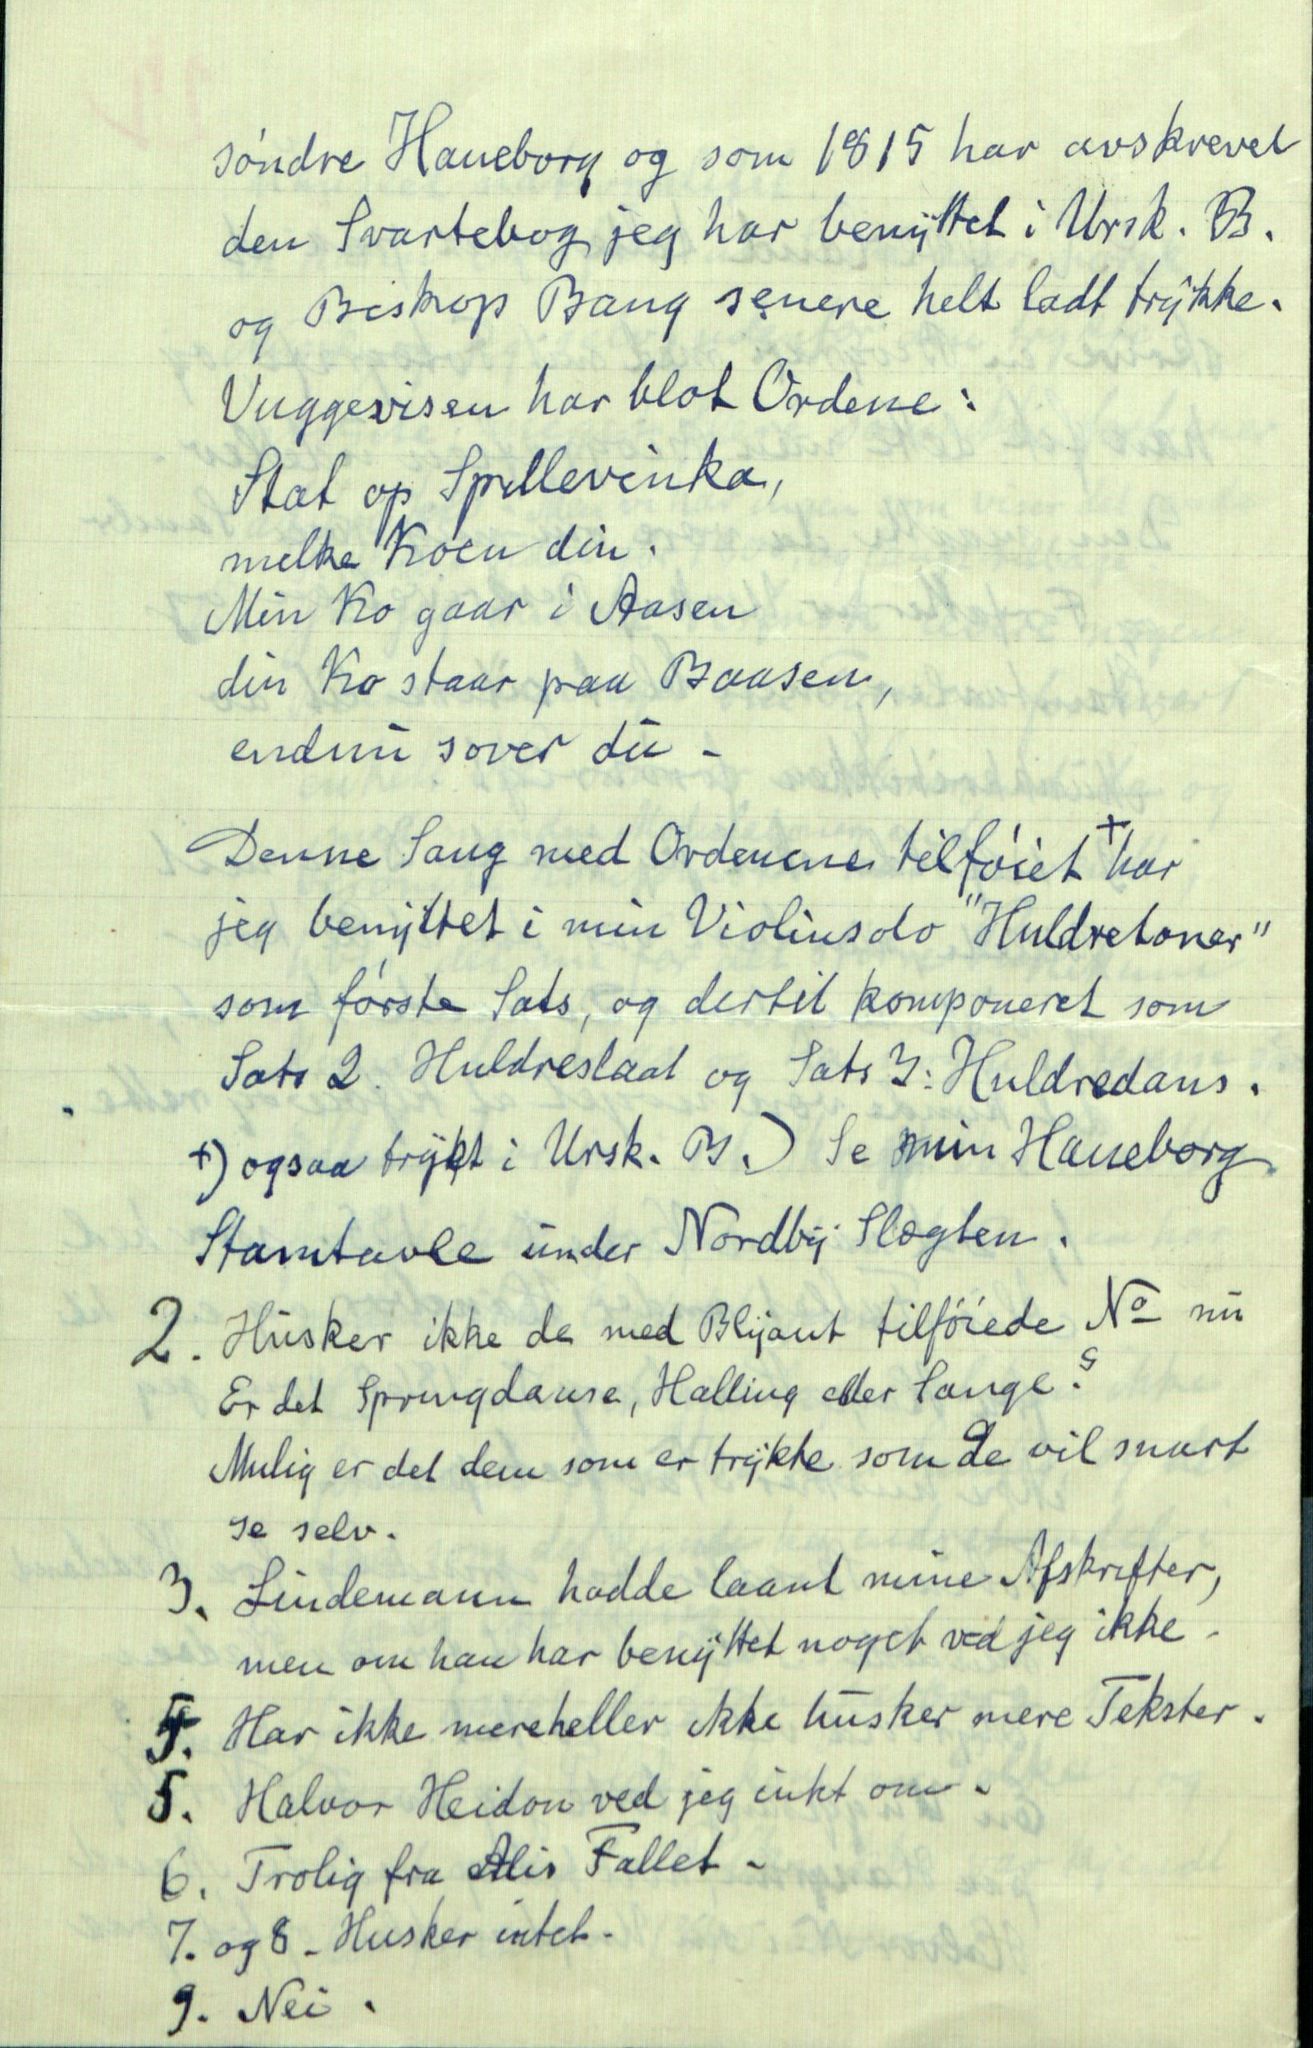 søndre Haneborg og som 1815 har avskrevet
den Svartebog jeg har benyttet i Ursk. B.
og Biskop Bang senere helt ladt trykke.
Vuggevisen har blot Ordene:
Stat op Spillevinka,
melke Koen din.
Min Ko gaar i Aasen
din Ko staar paa Baasen,
endnu sover du -
Denne Sang med Ordenene tilføiet + har
jeg benyttet i min Violinsolo "Huldretoner"
som første Sats, og dertil komponeret som
Sats 2. Huldreslaat og Sats 3: Huldredans.
+) ogsaa trykt i Ursk. B.) Se min Haneborg
Stamtavle under Nordby Slegten.
2. Husker ikke de med Blyant tilføiede No nu
Er det Springdanse, Halling eller Sange?
Mulig er det dem som er trykte som De vil snart
se selv.
3. Lindemann hadde laant mine Afskrifter,
men om han har benyttet noget ved jeg ikke.
4. Har ikke mere heller ikke husker mere Tekster.
5. Halvor Heidon ved jeg intet om.
6. Trolig fra Alis Fallet -
7. og 8 - Husker intet.
9. Nei.